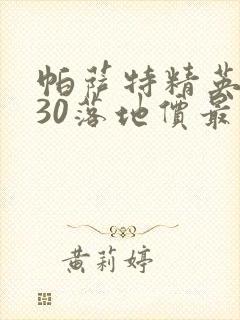 帕萨特精英
30落地價最
黄莉婷